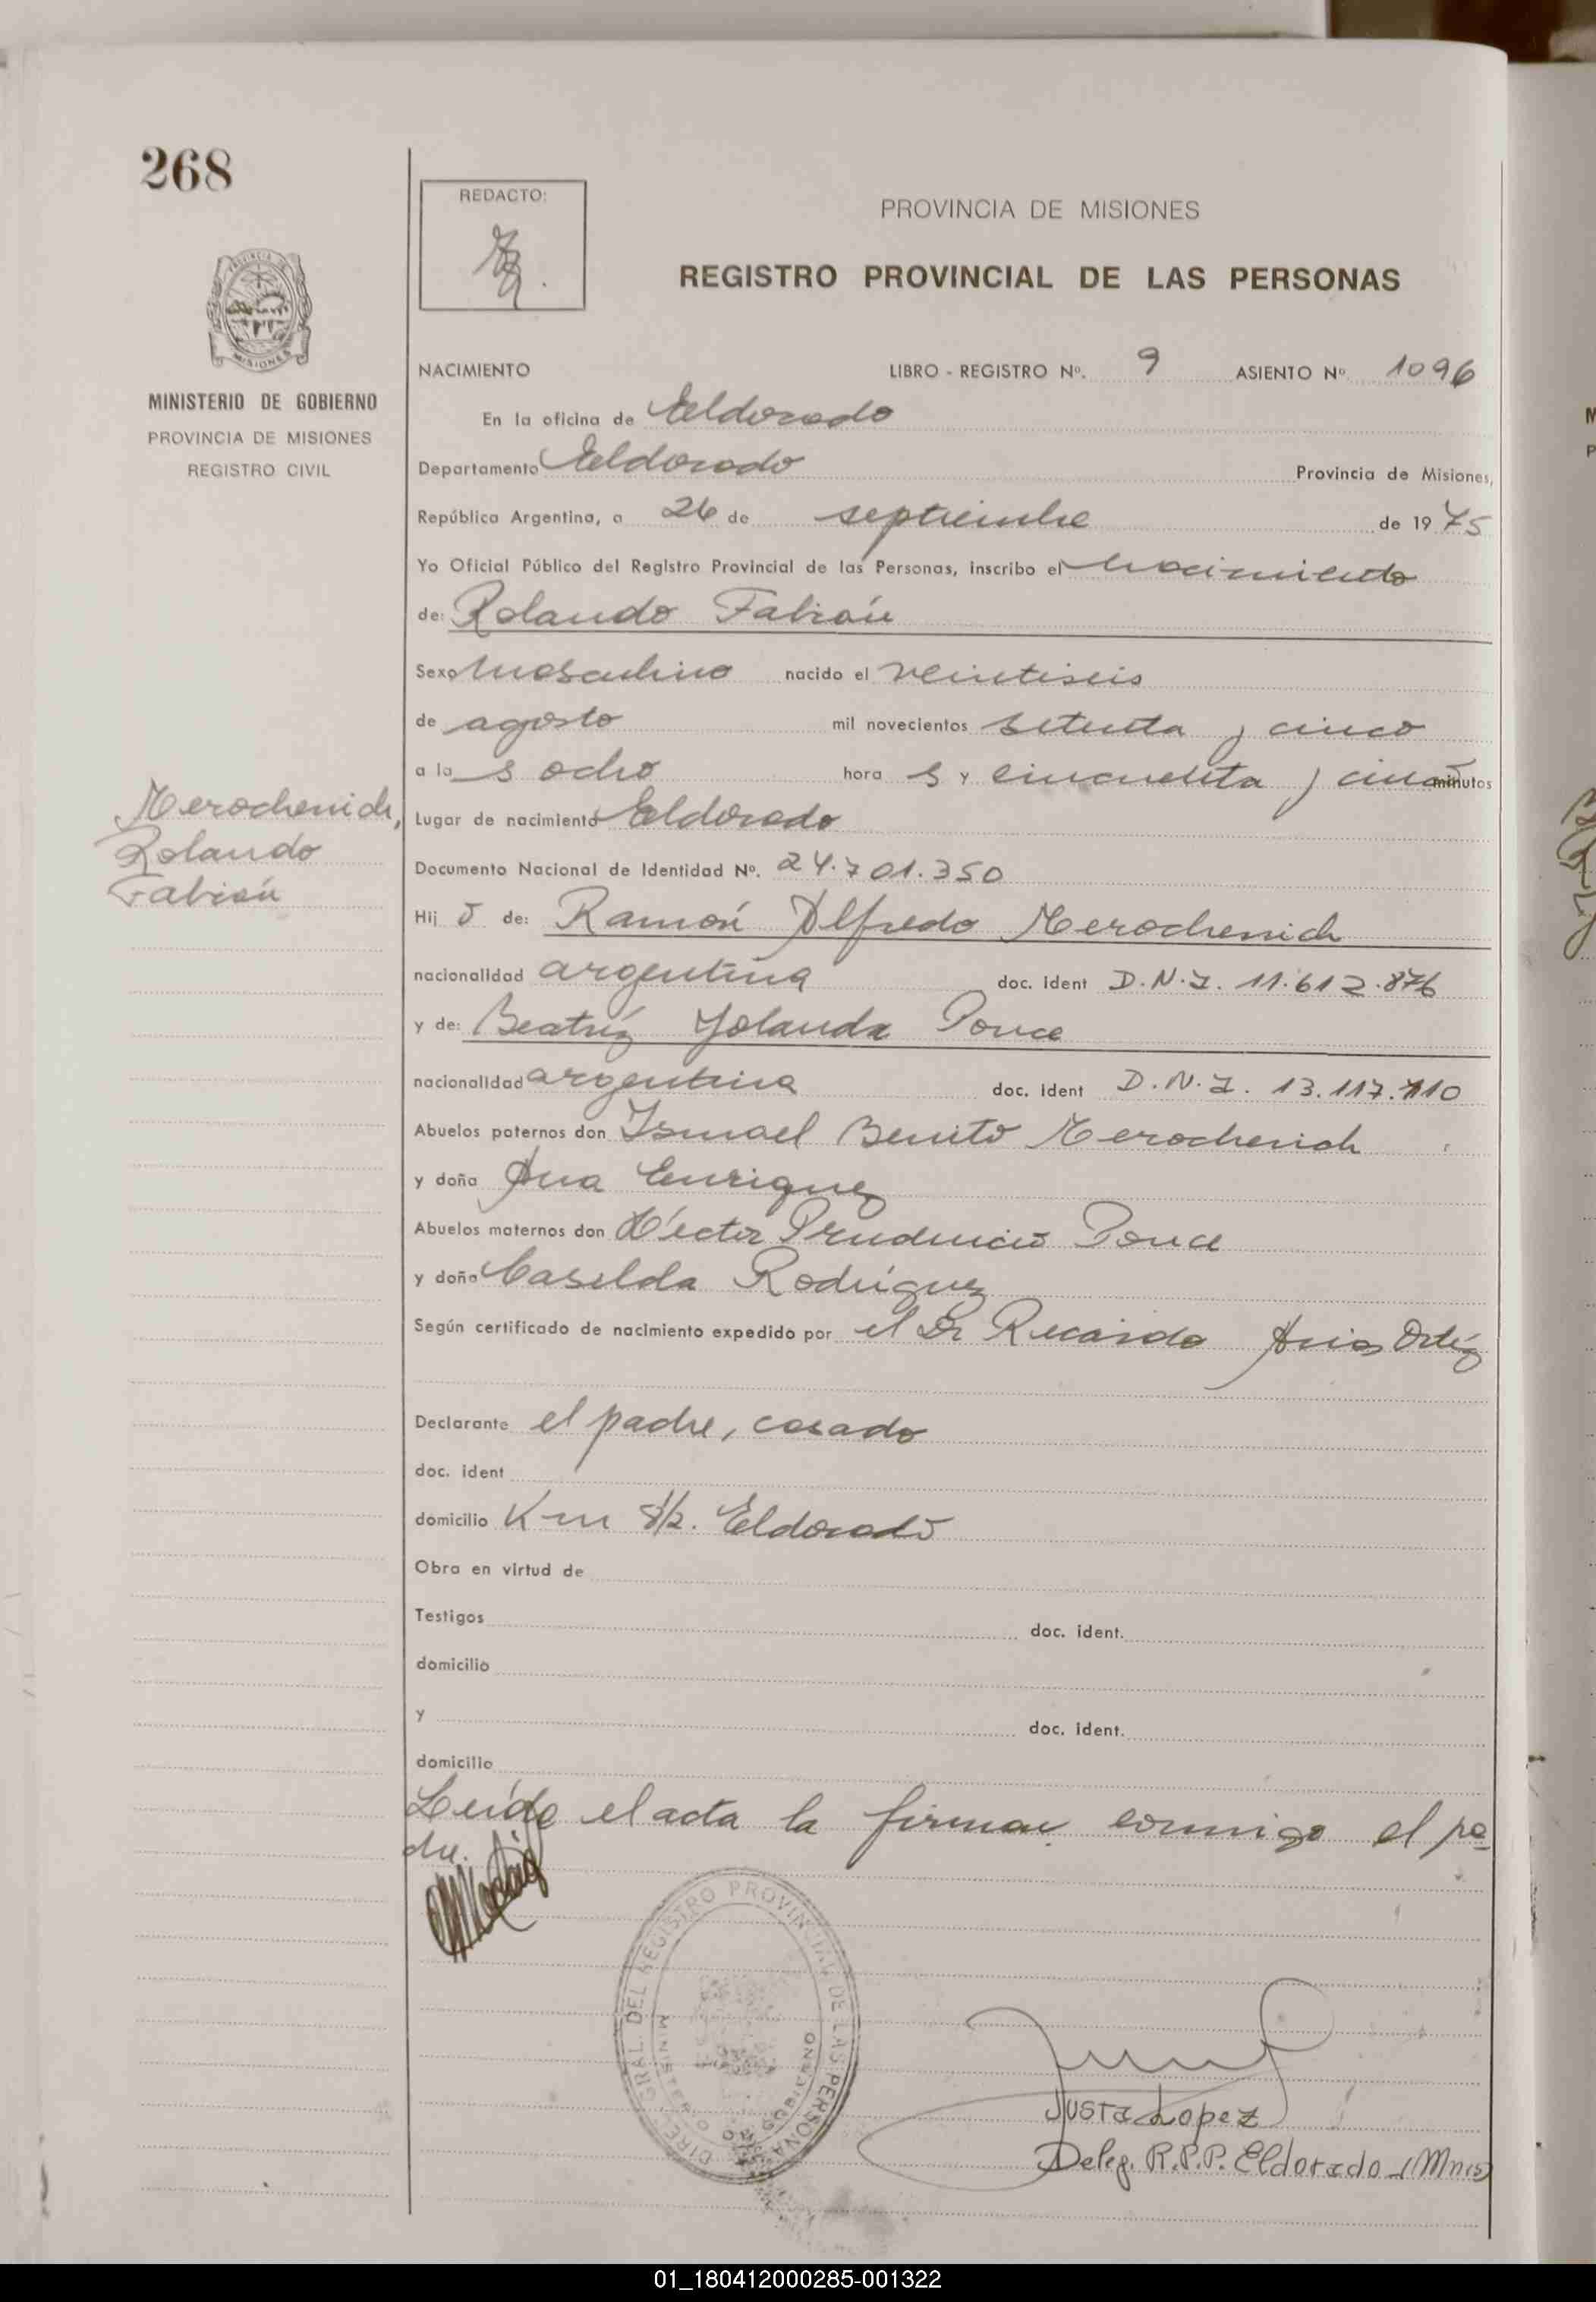 268
REDACTO:
PROVINCIA DE MISIONES
REGISTRO PROVINCIAL DE LAS PERSONAS
MISIONES
MINISTERIO DE GOBIERNO
PROVINCIA DE MISIONES
REGISTRO CIVIL
NACIMIENTO LIBRO - REGISTRO Nº. 9 ASIENTO Nº 1096
En la oficina de Eldorado
Departamento Eldorado Provincia de Misiones,
República Argentina, a 26 de septiembre de 1975
Yo Oficial Público del Registro Provincial de las Personas, inscribo el nacimiento
de: Rolando Fabián
Sexo masculino nacido el veintiseis
de agosto mil novecientos setenta y cinco
a la s ocho hora s y cincuenta y cinco minutos
Merochenich,
Rolando
Fabián
Lugar de nacimiento Eldorado
Documento Nacional de Identidad Nº. 24.701.350
Hij o de: Ramón Alfredo Merochenich
nacionalidad argentina doc. ident D.N.I. 11.612.876
y de: Beatríz Yolanda Ponce
nacionalidad argentina doc. ident D.N.I. 13.117.110
Abuelos paternos don Ismael Benito Merochenich
y doña Ana Enriquez
Abuelos maternos don Héctor Prudencio Ponce
y doña Casilda Rodríguez
Según certificado de nacimiento expedido por el Dr Ricardo Arias Ortíz
Declarante el padre, casado
doc. ident
domicilio Km 8/2. Eldorado
Obra en virtud de
Testigos doc. ident.
domicilio
y doc. ident.
domicilio
Leída el acta la firman conmigo el pa-
dre.
DIREC. GRAL. DEL REGISTRO PROVINCIAL DE LAS PERSONAS
MINISTERIO GOBIERNO
Justa Lopez
Deleg. R.P.P. Eldorado (Mnes)
01_180412000285-001322